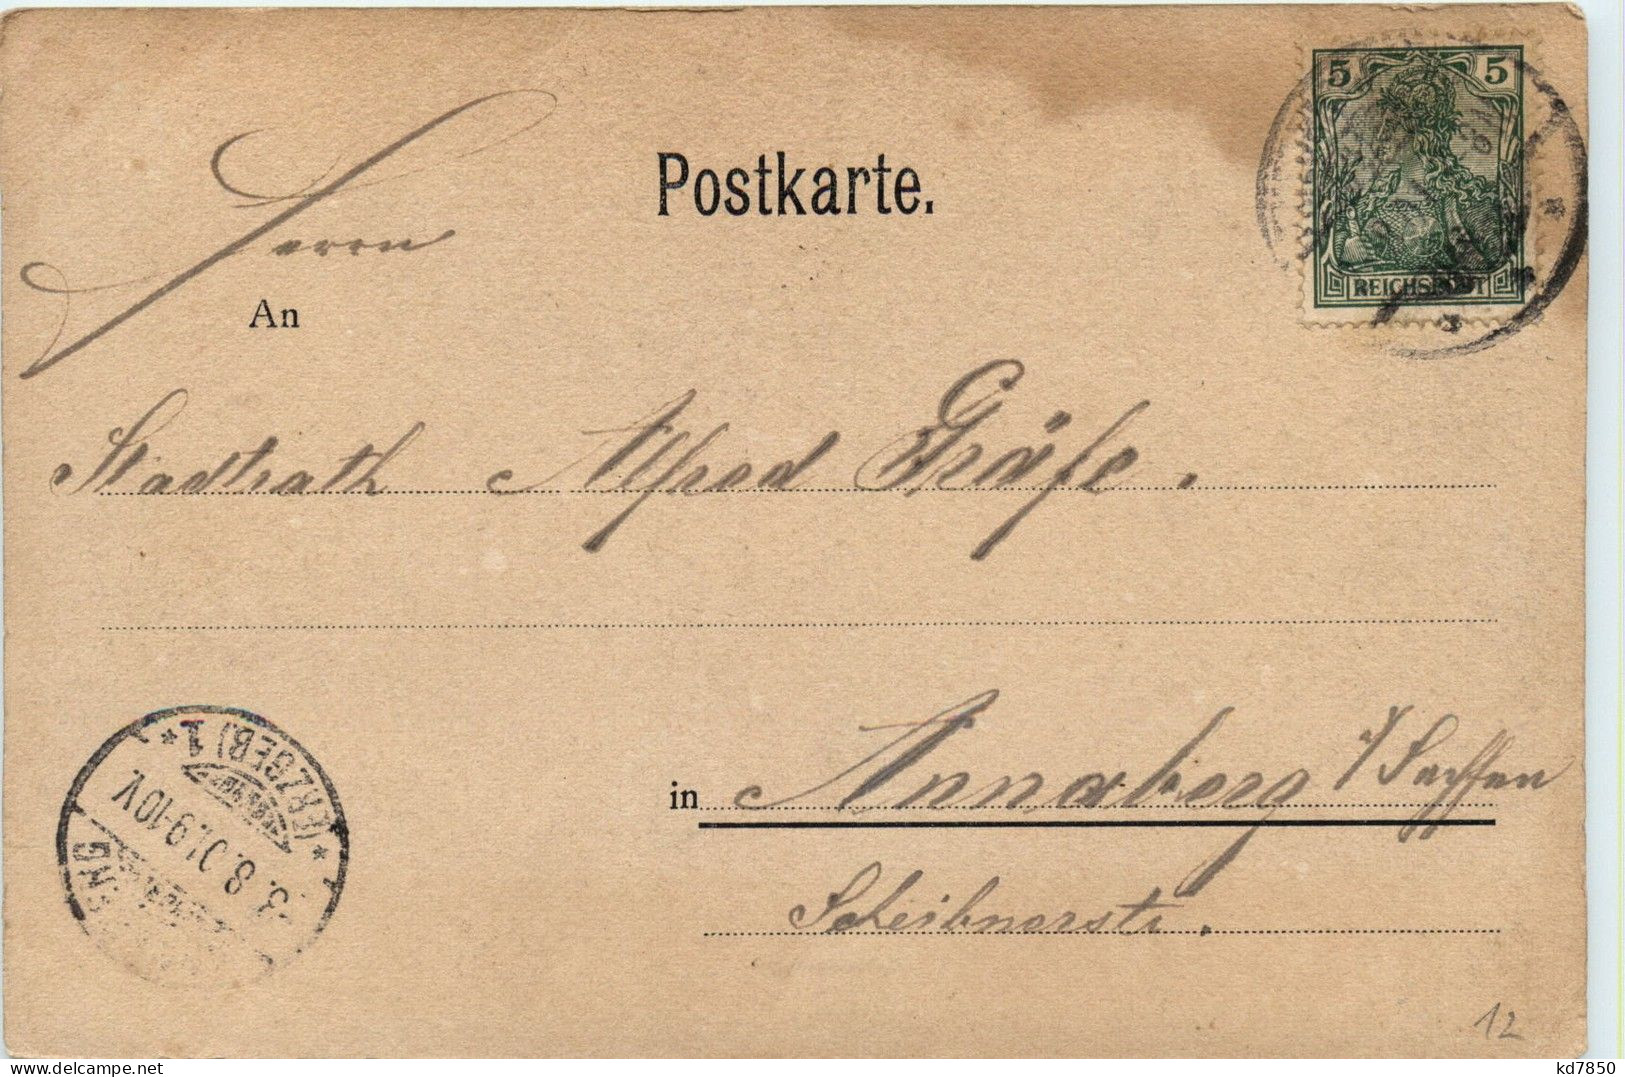 Postkarte.
5 5
REICHSPOST
Herrn
An
Stadtrath Alfred Gräfe.
in Annaberg i/Sachsen
Scheibnerstr.
(ERZGEB) 1.
3.8.01.9-10V.
12
delcampe.net
kd7850